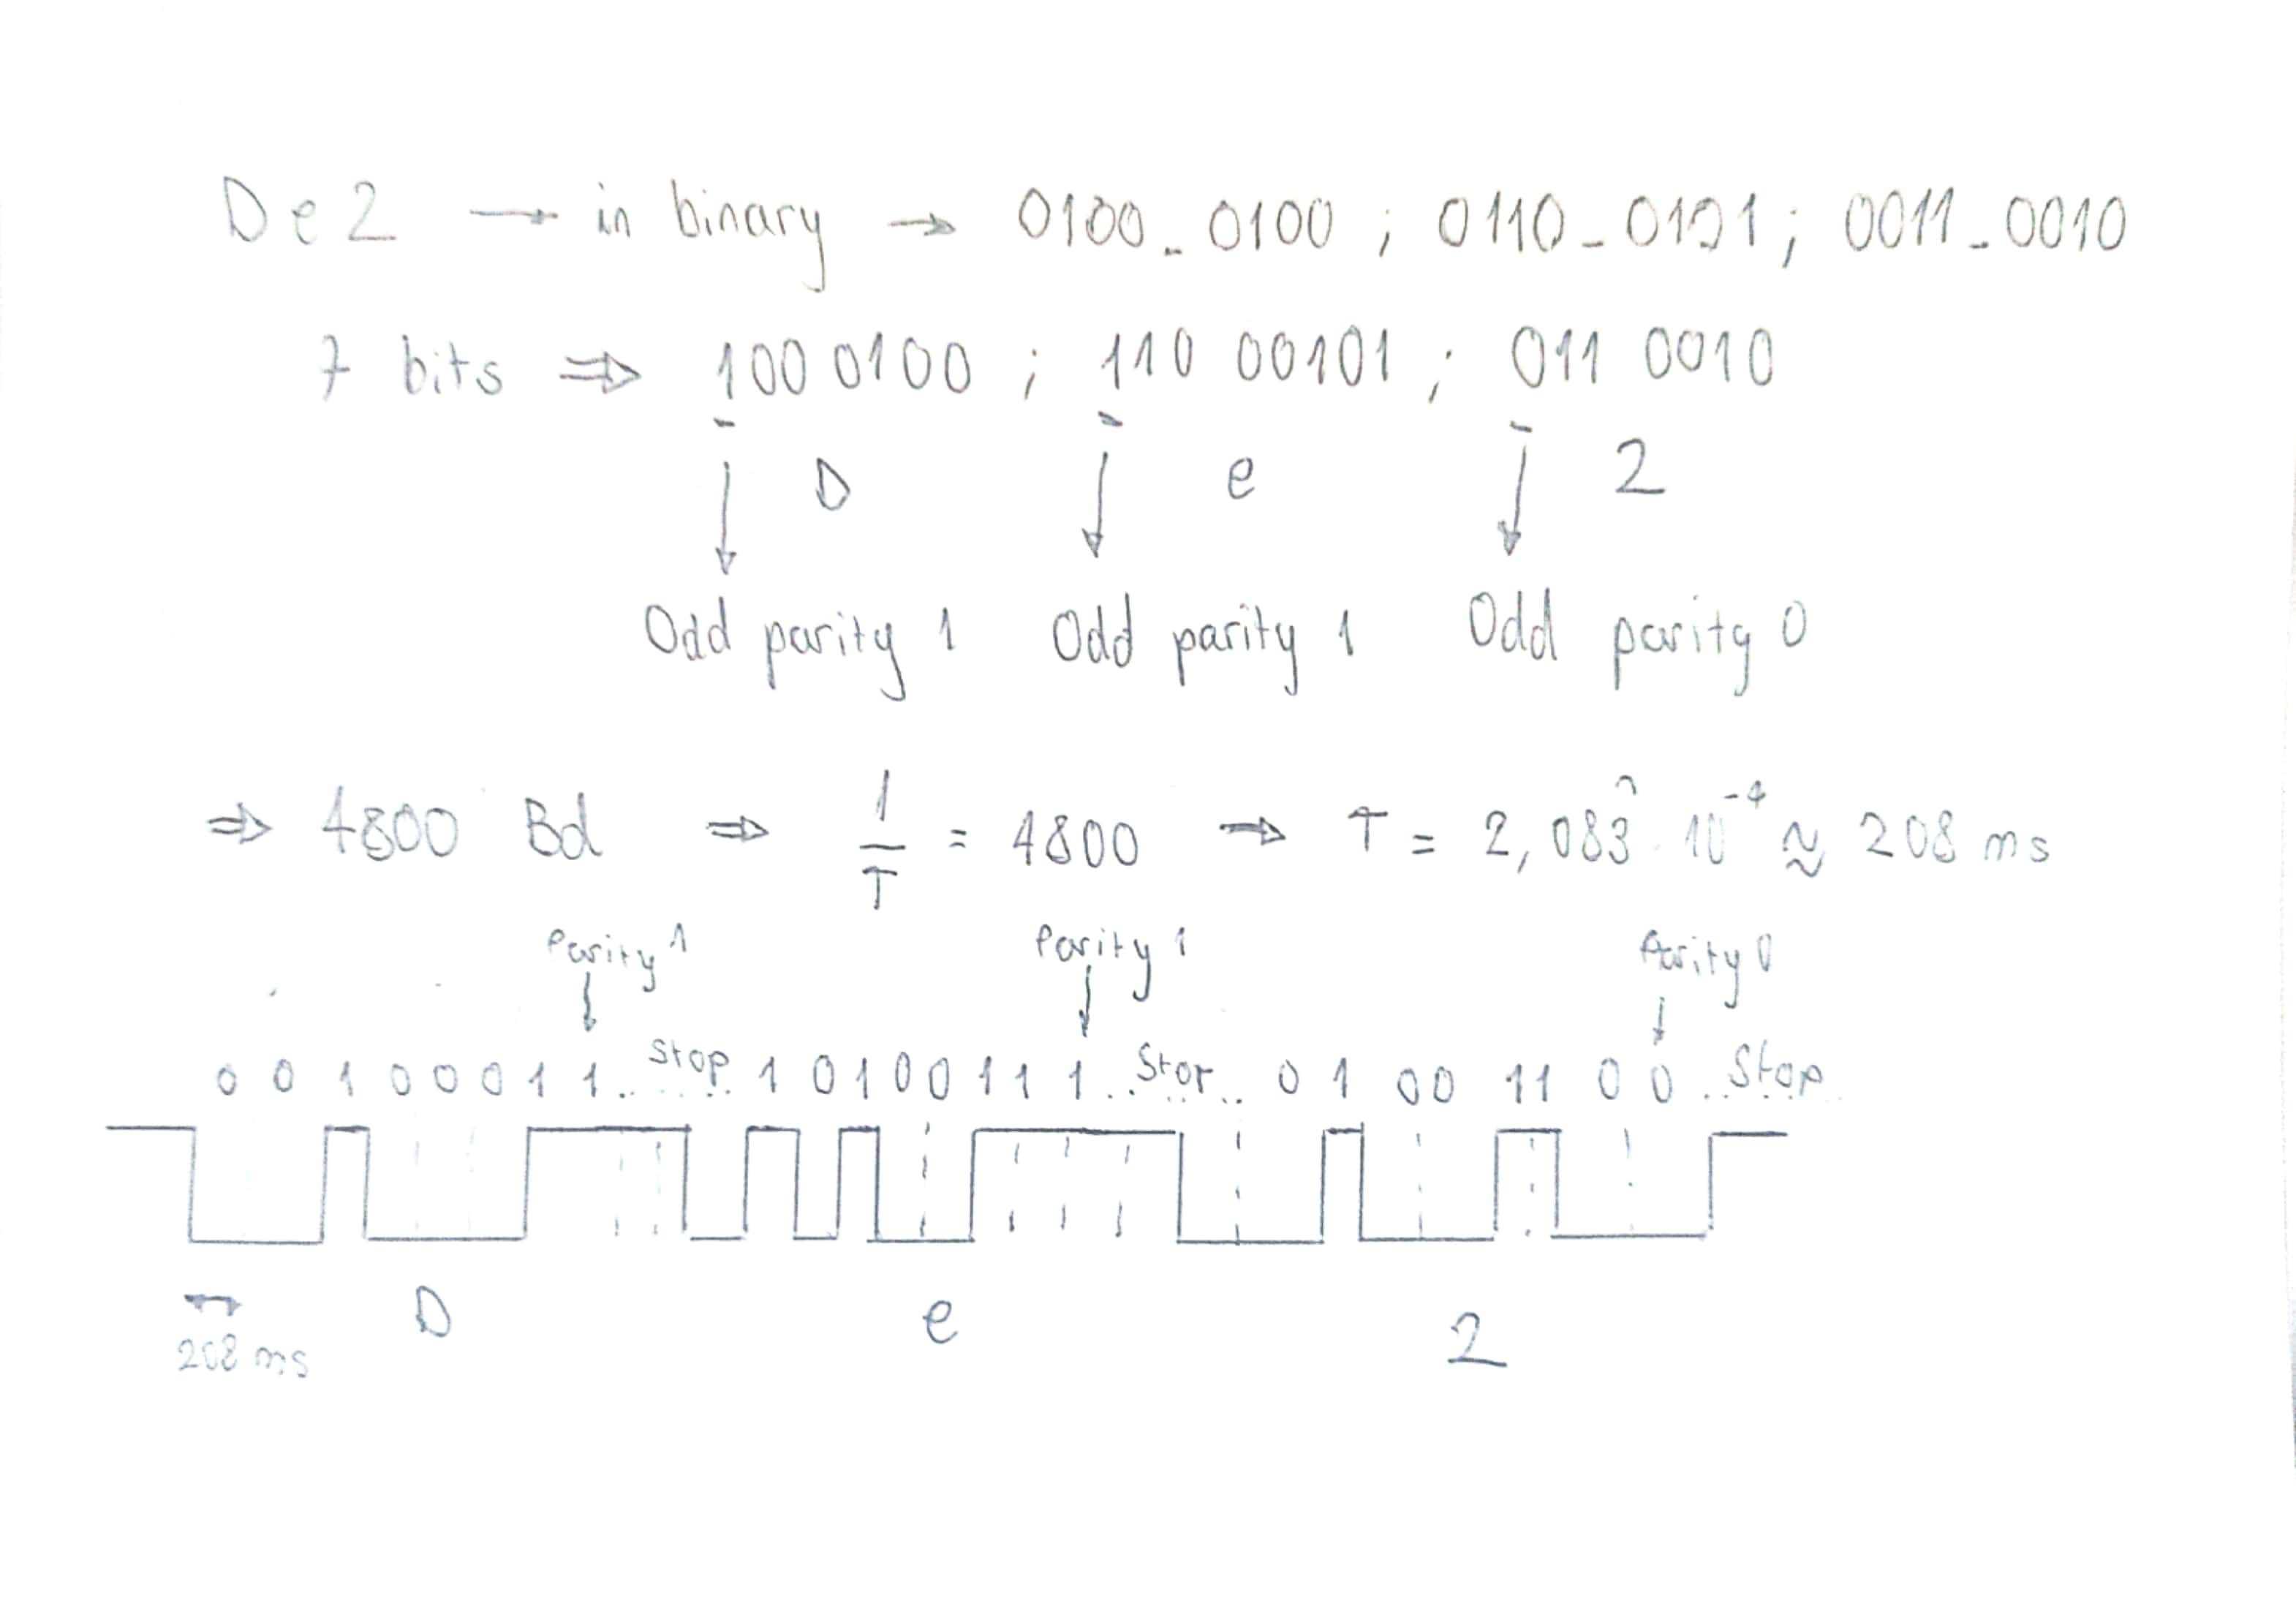 De2 → in binary → 0100_0100 ; 0110_0101 ; 0011_0010
7 bits ⇒ 100 0100 ; 110 00101 ; 011 0010
D e 2
Odd parity 1 Odd parity 1 Odd parity 0
⇒ 4800 Bd ⇒ 1/T = 4800 → T = 2,083̂ · 10⁻⁴ ≈ 208 ms
Parity 1 Parity 1 Parity 0
0 0 1 0 0 0 1 1 .. Stop .. 1 0 1 0 0 1 1 1 .. Stop .. 0 1 0 0 1 1 0 0 .. Stop
D e 2
208 ms